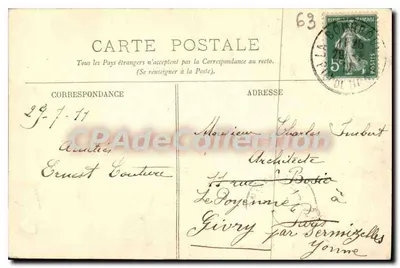 63
CARTE POSTALE
Tous les Pays étrangers n'acceptent pas la Correspondance au recto.
(Se renseigner à la Poste).
CORRESPONDANCE
ADRESSE
29-7-11
Amitiés
Ernest Couture
CPAdeCollection
Monsieur Charles Imbert
Architecte
11 rue Bosio
Paris
Givry par Sermizelles
Yonne